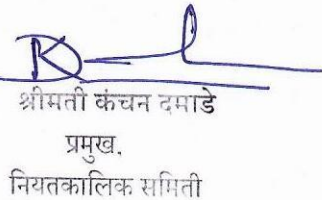 श्रीमती कंचन दमाडे
प्रमुख,
नियतकालिक समिती